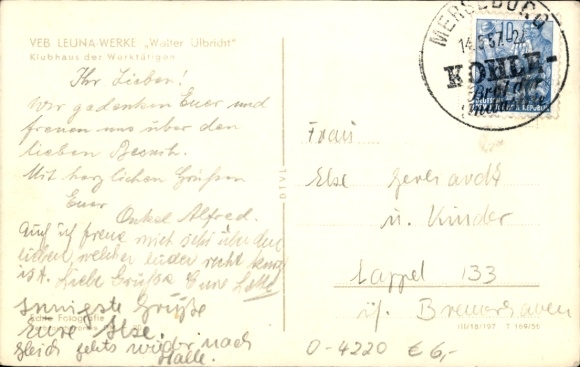 VEB LEUNA-WERKE „Walter Ulbricht"
Klubhaus der Werktätigen
Ihr Lieben!
Wir gedenken Euer und
freuen uns über den
lieben Besuch.
Mit herzlichen Grüßen
Euer
Onkel Alfred.
Auch ich freue mich sehr über den
lieben, welcher leider recht kurz
ist. Liebe Grüße Eure Lotte
Innigste Grüße
Eure Ilse.
Gleich gehts wieder nach
Halle.
Echte Fotografie
MERSEBURG
KOHLE-
Brot der
Industrie
10
Frau
Else Gerhardt
u. Kinder
Lappel 133
üb. Bremerhaven
III/18/197 T 169/56
0-4220 € 6,-